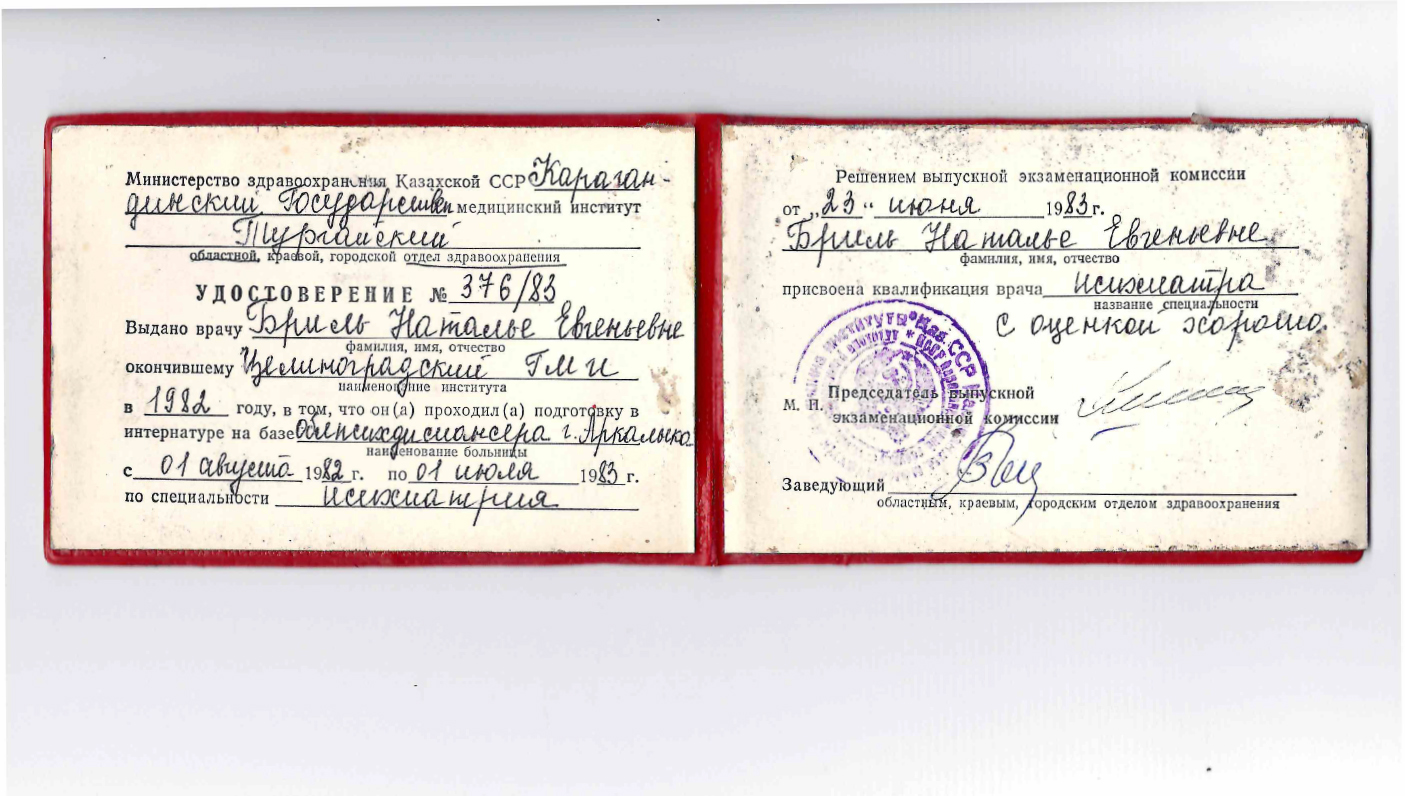 Министерство здравоохранения Казахской ССР Караган-
динский Государствен медицинский институт
Тургайский
областной, краевой, городской отдел здравоохранения
УДОСТОВЕРЕНИЕ № 376/83
Выдано врачу Бриль Наталье Евгеньевне
фамилия, имя, отчество
окончившему Целиноградский ГМИ
наименование института
в 1982 году, в том, что он(а) проходил(а) подготовку в
интернатуре на базе облпсихдиспансера г. Аркалыка
наименование больницы
с 01 августа 1982 г. по 01 июля 1983 г.
по специальности психиатрия
Решением выпускной экзаменационной комиссии
от „23" июня 1983 г.
Бриль Наталье Евгеньевне
фамилия, имя, отчество
присвоена квалификация врача психиатра
название специальности
с оценкой хорошо.
Председатель выпускной
М. П.
экзаменационной комиссии
Заведующий
областным, краевым, городским отделом здравоохранения